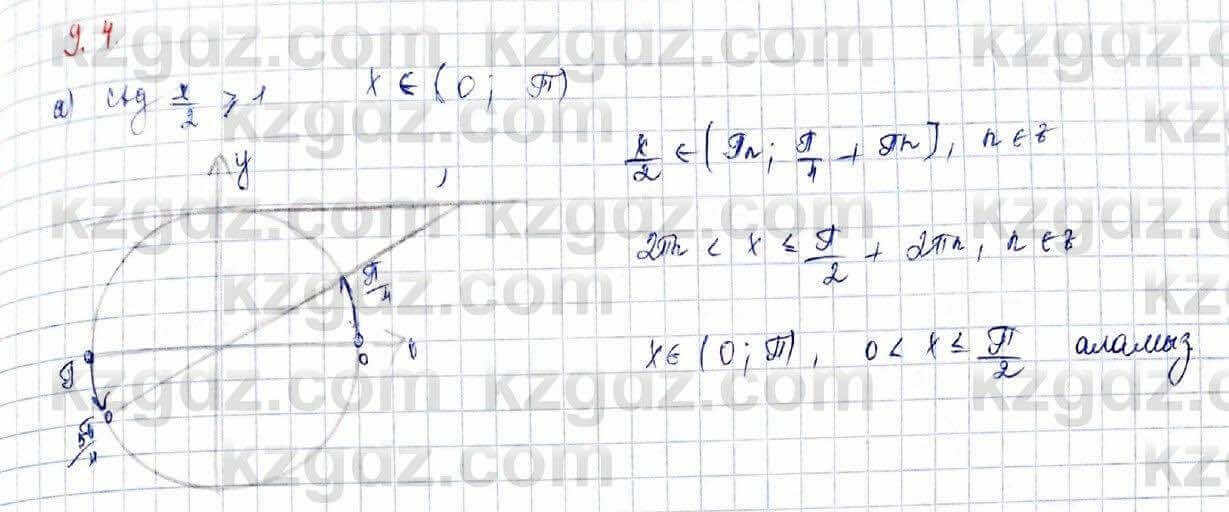 9.4.
а) ctg x/2 ⩾ 1   x ∈ (0; π)
x/2 ∈ (πn; π/4 + πn], n ∈ z
2πn < x ≤ π/2 + 2πn, n ∈ z
x ∈ (0; π), 0 < x ≤ π/2 аламыз
y
π/4
0
π
5π/4
kzgdz.com kzgdz.com kzgdz.com
kzgdz.com kzgdz.com kz
kzgdz.com kzgdz.com kzgdz.com
kzgdz.com kzgdz.com kz
kzgdz.com kzgdz.com kzgdz.com
kzgdz.com kzgdz.com kz